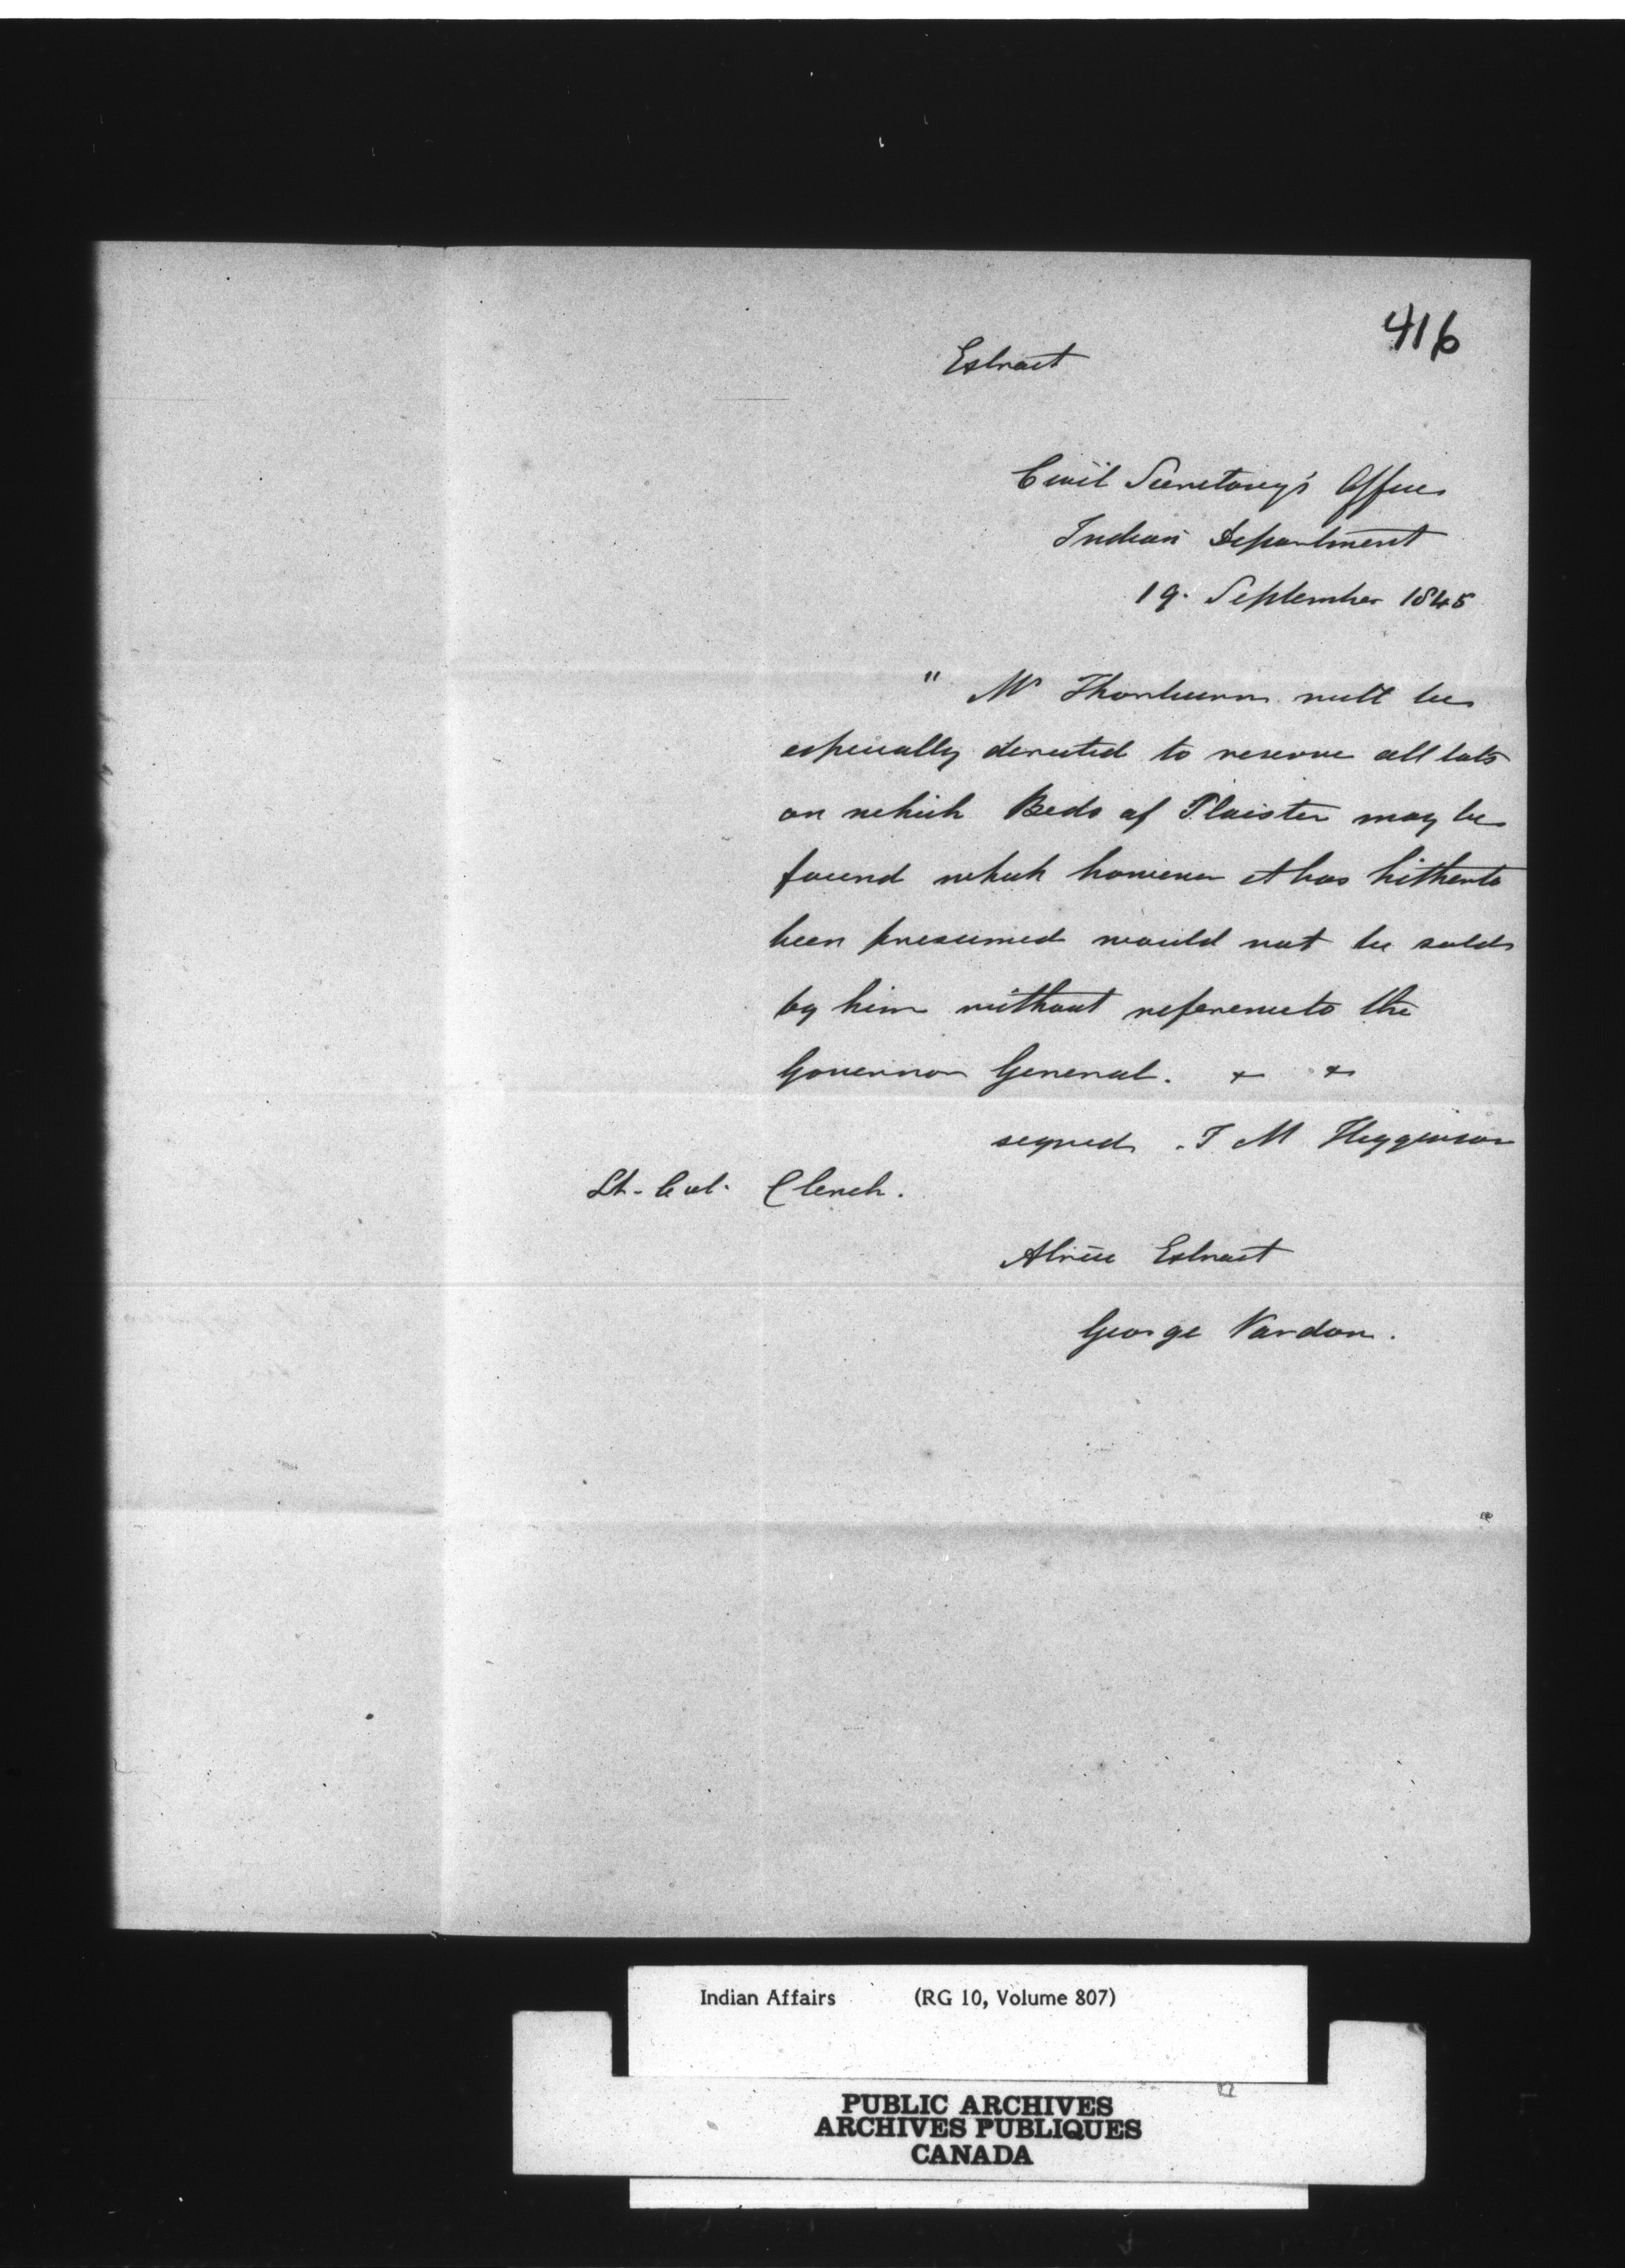 416
Extract
Civil Secretary's Office
Indian Department
19. September 1845
" Mr Thorburn will be
especially directed to reserve all lots
on which Beds of Plaister may be
found which however it has hitherto
been presumed would not be sold
by him without reference to the
Governor General. + +
signed. J M Higginson
Lt-Col. Clench.
A true Extract
George Vardon.
Indian Affairs (RG 10, Volume 807)
PUBLIC ARCHIVES
ARCHIVES PUBLIQUES
CANADA